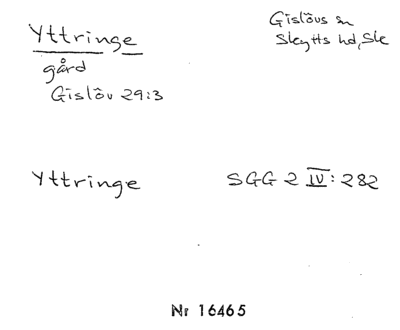 Yttringe
gård
Gislöv 29:3
Gislövs sn
Skytts hd, Sk
Yttringe
SGG 2 IV: 282
Nr 16465